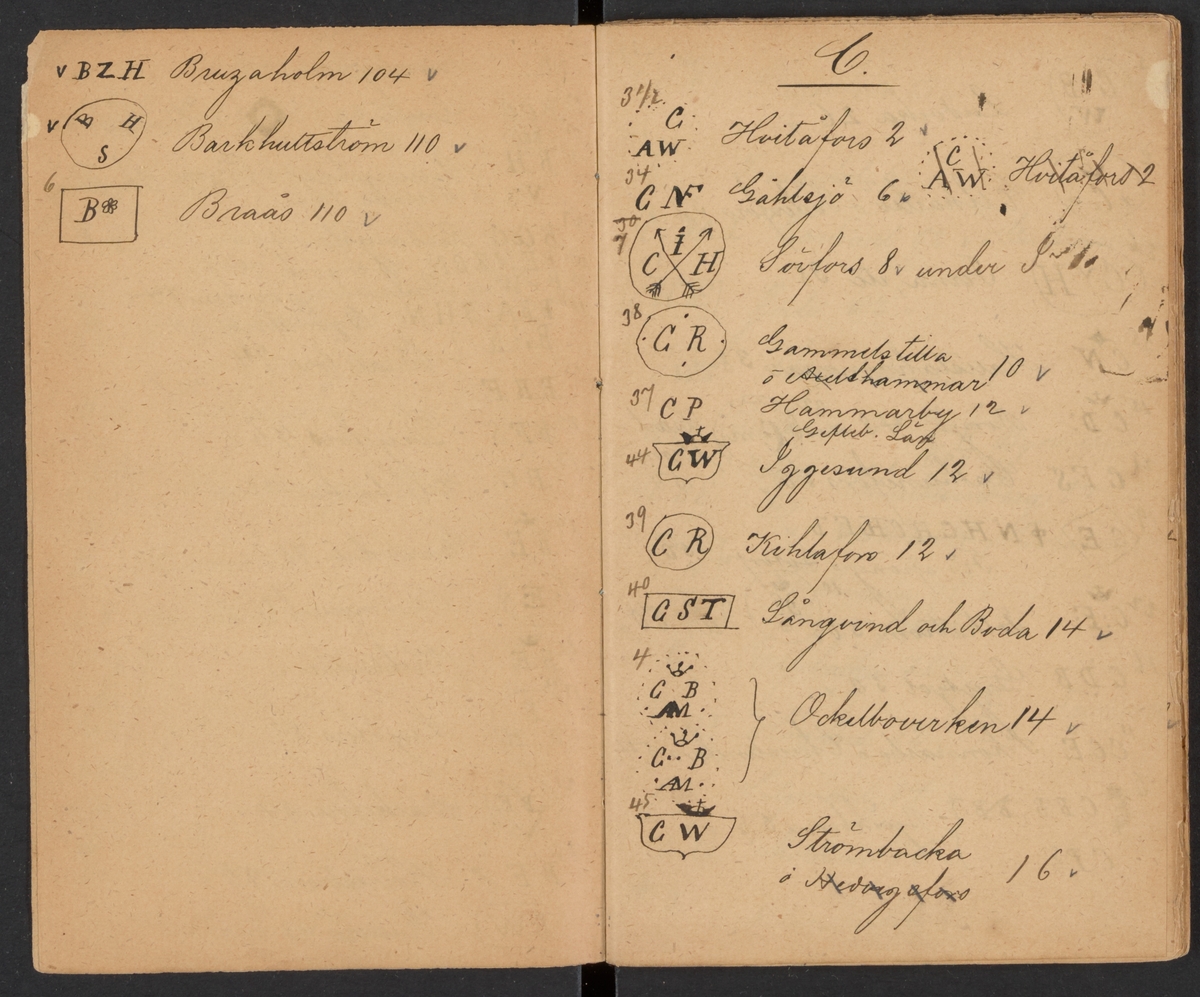 v BZH Bruzaholm 104 v
v B H S Barkhultström 110 v
6 B Braås 110 v
C.
31/2 C AW Hvitåfors 2 v
C AW Hvitåfors 2
34 C N Gåhlsjö 6 v
30 7 C I H Sörfors 8 v under I
38 C R Gammelstilla
ö Åtelshammar 10 v
37 C P Hammarby 12 v
Gefleb. Län
44 C W Iggesund 12 v
39 C R Kihlafors 12 v
40 G S T Långvind och Boda 14 v
4 C B AM
Ockelboverken 14 v
C B AM
45 C W Strömbacka
o Hedvigsfors 16 v